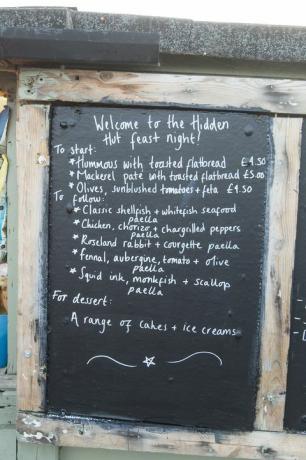 Welcome to the Hidden
Hut feast night!
To start:
* Hummous with toasted flatbread £4.50
* Mackerel pate with toasted flatbread £5.00
* Olives, sunblushed tomatoes + feta £4.50
To follow:
* Classic shellfish + whitefish seafood
paella
* Chicken, chorizo + chargrilled peppers
paella
* Roseland rabbit + courgette paella
* Fennal, aubergine, tomato + olive
paella
* Squid ink, monkfish + scallop
paella
For dessert:
A range of cakes + ice creams